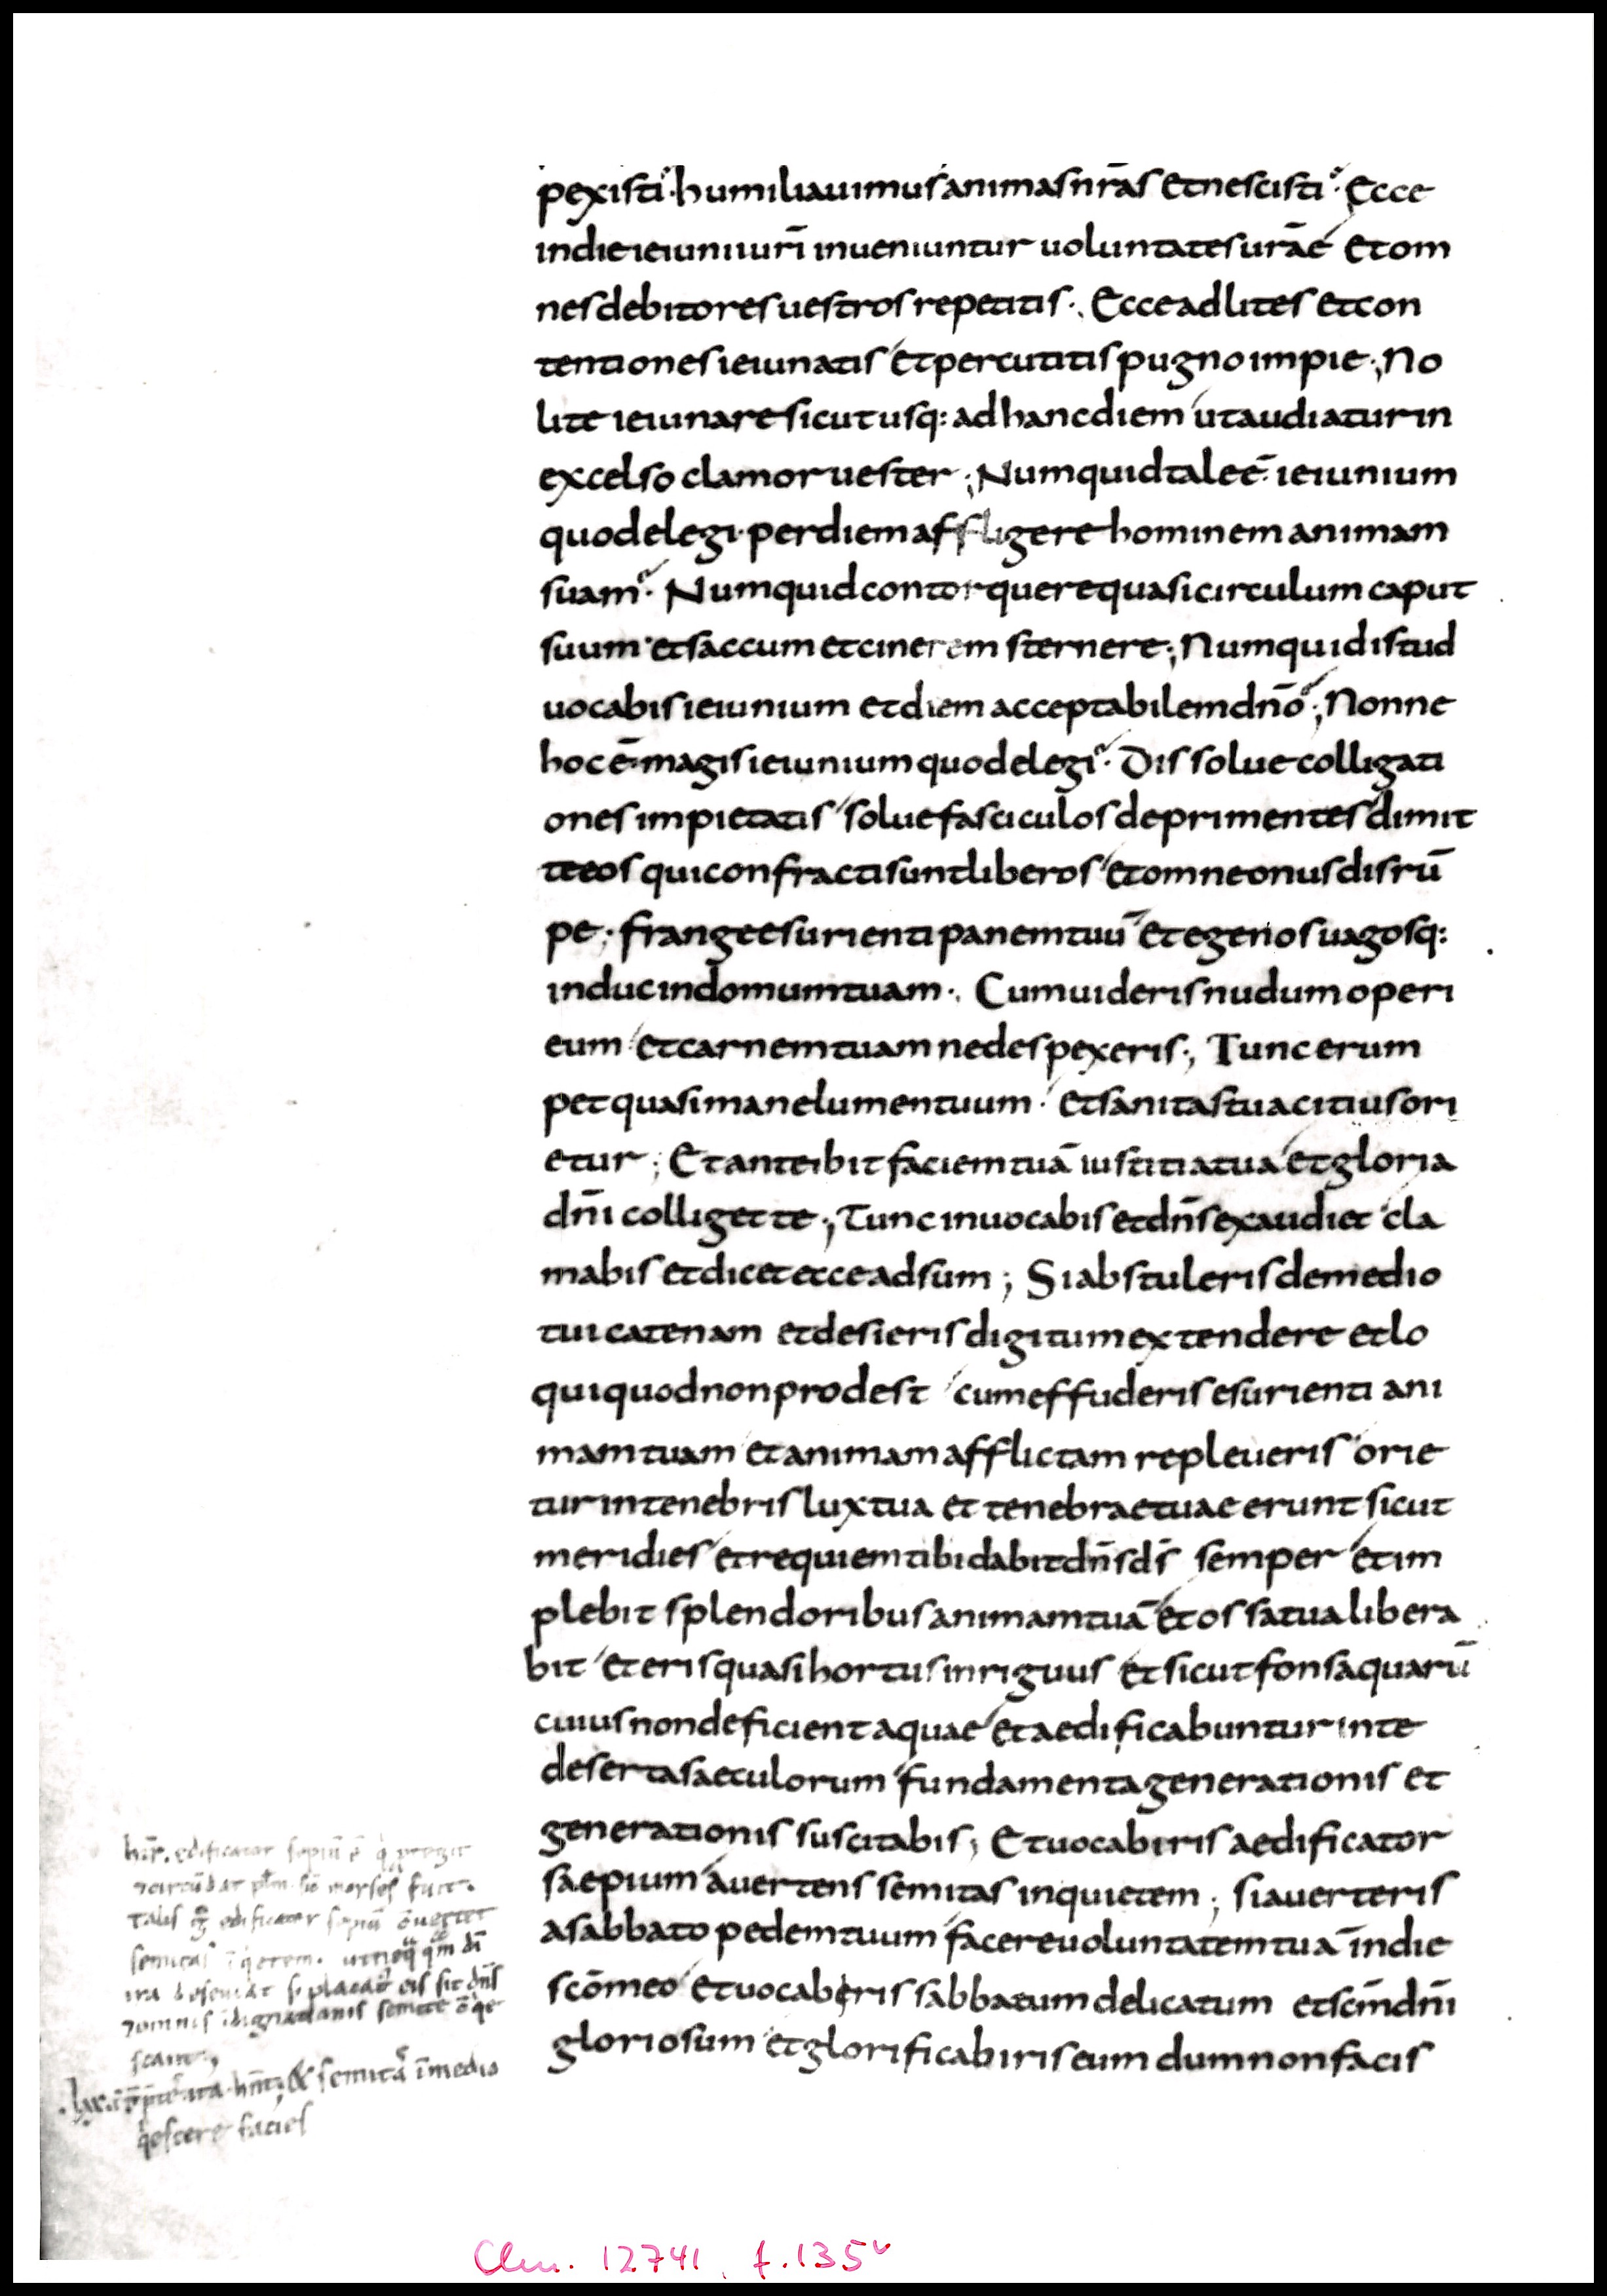 pexisti· humiliauimus animas nr̄as et nescisti· Ecce
in die ieiunii ur̄i inueniuntur uoluntates ur̄ae et om
nes debitores uestros repetitis·, Ecce ad lites et con
tentiones ieiunatis et percutitis pugno impie·, No
lite ieiunare sicut usq: ad hanc diem ut audiatur in
excelso clamor uester·, Numquid tale ē· ieiunium
quod elegi· per diem affligere hominem animam
suam· Numquid contorquere quasi circulum caput
suum· et saccum et cinerem sternere·, Numquid istud
uocabis ieiunium et diem acceptabilem dn̄o·, Nonne
hoc ē· magis ieiunium quod elegi· Dissolue colligati
ones impietatis solue fasciculos deprimentes dimit
te eos qui confracti sunt liberos et omne onus disrū
pe·, frange esurienti panem tuū et egenos uagosq:
induc in domum tuam·, Cum uideris nudum operi
eum et carnem tuam ne despexeris·, Tunc erum
pet quasi mane lumen tuum· et sanitas tua citius ori
etur; Et anteibit faciem tuā iustitia tua et gloria
dn̄i colliget te·, Tunc inuocabis et dn̄s exaudiet cla
mabis et dicet ecce adsum; Si abstuleris de medio
tui catenam et desieris digitum extendere et lo
qui quod non prodest cum effuderis esurienti ani
mam tuam et animam afflictam repleueris orie
tur in tenebris lux tua et tenebrae tuae erunt sicut
meridies et requiem tibi dabit dn̄s ds̄ semper et im
plebit splendoribus animam tuā et ossa tua libera
bit et eris quasi hortus inriguus et sicut fons aquarū
cuius non deficient aquae et aedificabuntur in te
deserta saeculorum fundamenta generationis et
generationis suscitabis; Et uocabiris aedificator
saepium auertens semitas in quietem; si auerteris
a sabbato pedem tuum facere uoluntatem tuā in die
scō meo et uocaberis sabbatum delicatum et scm̄ dn̄i
gloriosum et glorificabiris eum dum non facis
edificator
morsos fuit.
talis edificator
semitas
ira
semite
semitā in medio
facies
Clm. 12741, f. 135v